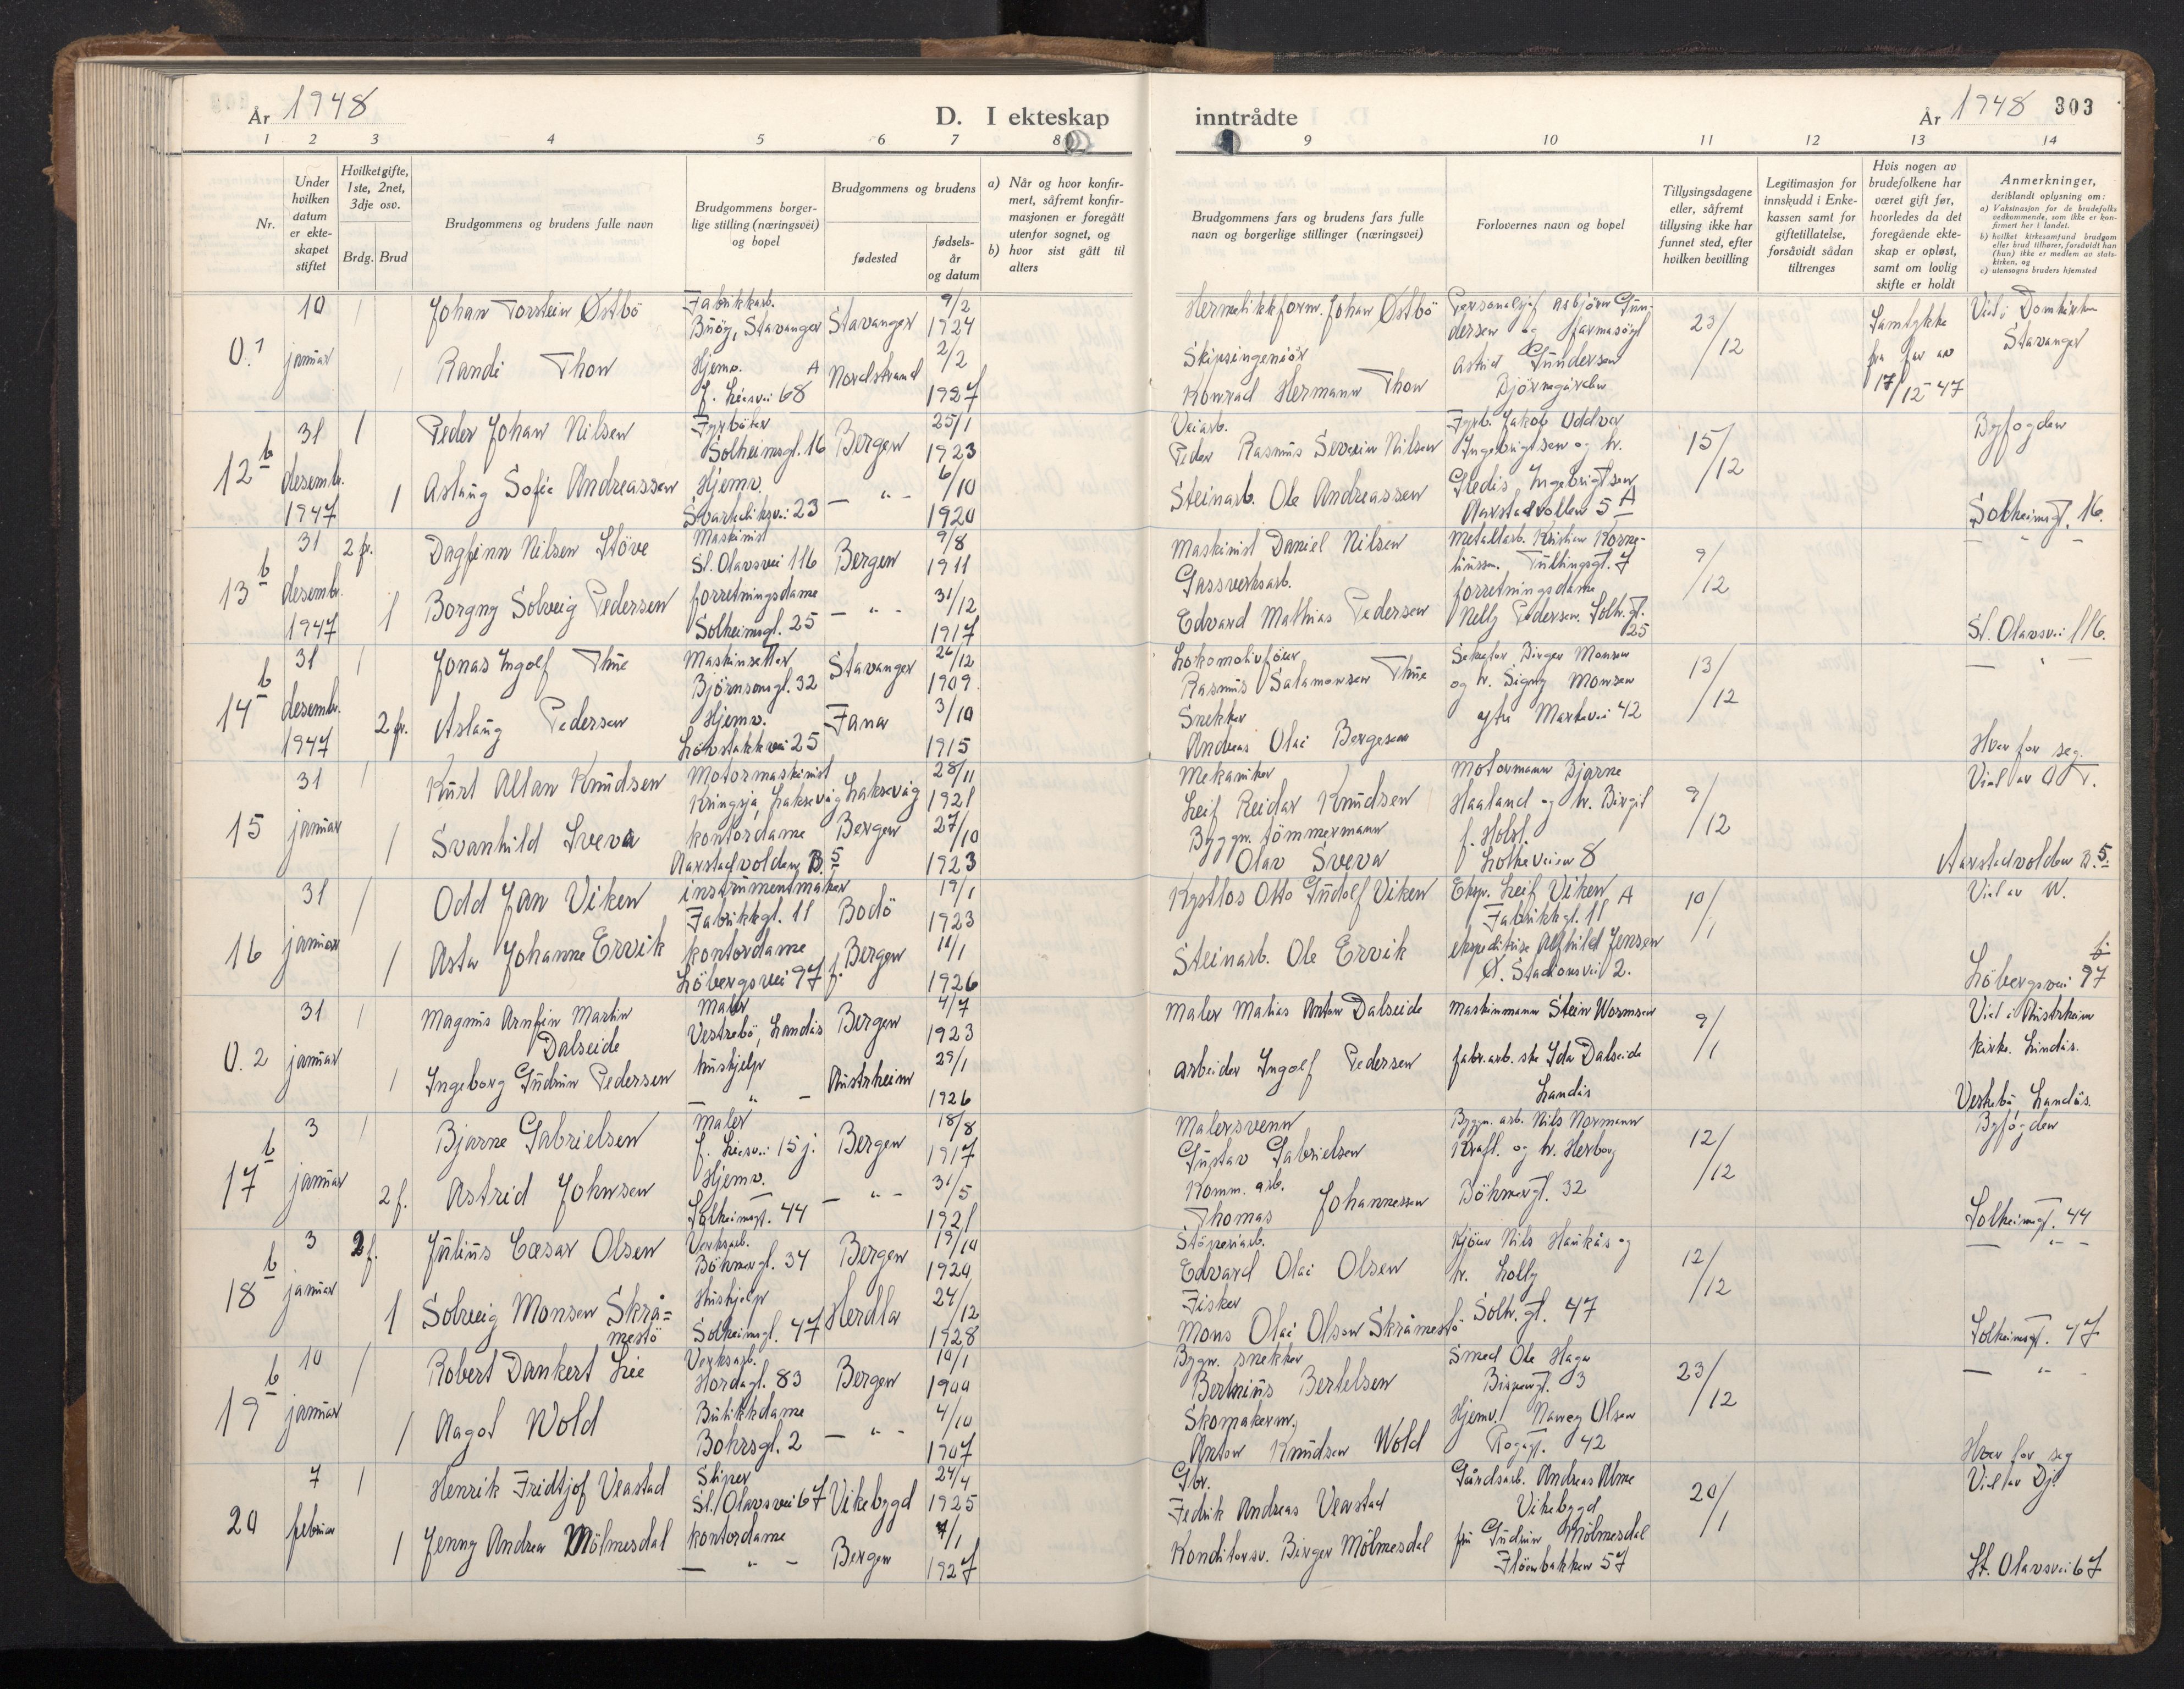 År 1948
D. I ekteskap inntrådte
År 1948 303
1 2 3 4 5 6 7 8 9 10 11 12 13 14
Nr.
Under hvilken datum er ekteskapet stiftet
Hvilket gifte, 1ste, 2net, 3dje osv.
Brdg. Brud
Brudgommens og brudens fulle navn
Brudgommens borgerlige stilling (næringsvei) og bopel
Brudgommens og brudens
fødested
fødselsår og datum
a) Når og hvor konfirmert, såfremt konfirmasjonen er foregått utenfor sognet, og
b) hvor sist gått til alters
Brudgommens fars og brudens fars fulle navn og borgerlige stillinger (næringsvei)
Forlovernes navn og bopel
Tillysingsdagene eller, såfremt tillysing ikke har funnet sted, efter hvilken bevilling
Legitimasjon for innskudd i Enkekassen samt for giftetillatelse, forsåvidt sådan tiltrenges
Hvis nogen av brudefolkene har været gift før, hvorledes da det foregående ekteskap er opløst, samt om lovlig skifte er holdt
Anmerkninger, deriblandt oplysning om:
a) Vaksinasjon for de brudefolks vedkommende, som ikke er konfirmert her i landet.
b) hvilket kirkesamfund brudgom eller brud tilhører, forsåvidt han (hun) ikke er medlem av statskirken, og
c) utensogns bruders hjemsted
U.1 10 januar 1 Johan Torstein Østbö Fabrikkarb. Buøy, Stavanger Stavanger 9/2 1924 Hermetikkform. Johan Østbö 23/12 Samtykke fra far av 17/12-47 Viet i Domkirken Stavanger
1 Randi Thow Hjemv. f. Liesvei 68 A Nordstrand 2/2 1927 Skipsingeniör Konrad Hermann Thow Astrid Gundersen
12 b 31 desemb. 1947 1 Peder Johan Nilsen Fyrböter Solheimsgt. 16 Bergen 25/1 1923 Veiarb. Peder Rasmus Severin Nilsen Fyrb. Jakob Oddvar Ingebrigtsen og hr. 15/12 Byfogden
1 Aslaug Sofie Andreassen Hjemv. 23 - " - 6/10 1920 Steinarb. Ole Andreassen Gledis Ingebrigtsen Aarstadvollen 5 A Solheimsgt. 16.
13 b 31 desemb. 1947 2 fr. Dagfinn Nilsen Stöve Maskinist St. Olavsvei 116 Bergen 9/8 1911 Maskinist Daniel Nilsen Metallarb. Kristian Korneliussen. Tullingsgt. 7 9/12 - " -
1 Borgny Solveig Pedersen forretningsdame Solheimsgt. 25 - " - 31/12 1917 Gassverksarb. Edvard Mathias Pedersen forretningsdame Nelly Pedersen. Solh.gt. 25 St. Olavsvei 116.
14 b 31 desemb. 1947 1 Jonas Ingolf Thue Maskinsetter Björnsonsgt. 32 Stavanger 26/12 1909 Lokomotivförer Rasmus Salamonsen Thue Birger Monsen og hr. Signy Monsen 13/12 - " -
2 fr. Aslaug Pedersen Hjemv. Lövstakkvei 25 Fana 3/10 1915 Snekker Andreas Olai Bergesen 42 Hver for seg.
15 31 januar 1 Kurt Allan Knudsen Motormaskinist Kringsjå, Laksevåg Laksevåg 28/11 1921 Mekaniker Leif Reidar Knudsen Motormann Bjarne Haaland og hr. Birgit f. Holst. 9/12 Viet av O.T.
1 Svanhild Sveva kontordame Aarstadvolden B. 5 Bergen 27/10 1923 Byggn. tömmermann Olav Sveva Lotheveien 8 Aarstadvolden B. 5
16 31 januar 1 Odd Jan Viken instrumentmaker Fabrikkgt. 11 Bodö 19/1 1923 Kystlos Otto Gudolf Viken Eksp. Leif Viken Fabrikkgt. 11 A 10/1 Viet av W.
1 Asta Johanne Ervik kontordame Löbergsvei 97 f. Bergen 11/1 1926 Steinarb. Ole Ervik ekspeditrise Alfhild Jensen Ø. Stadionsvei 2. Löbergsvei 97
U. 2 31 januar 1 Magnus Arnfin Martin Dalseide Maler Vestrebö, Landås Bergen 4/7 1923 Maler Matias Anton Dalseide Maskinmann Stein Wormsen 9/1 Viet i Austrheim kirke. Lindås.
1 Ingeborg Gudrun Pedersen hushjelp - " - Austrheim 29/1 1926 Arbeider Ingolf Pedersen fabr.arb. ske Ida Dalseide Landås Vestrebö Landås.
17 b 3 januar 1 Bjarne Gabrielsen Maler f. Liesvei 15 j. Bergen 18/8 1917 Malersvenn Gustav Gabrielsen Byggn. arb. Nils Normann Kraft. og hr. Herborg 12/12 Byfogden
2 f. Astrid Johnsen Hjemv. Solheimsgt. 44 - " - 31/5 1921 Komm. arb. Thomas Johannessen Böhmergt. 32 Solheimsgt. 44
18 b 3 januar 2 f. Julius Cæsar Olsen Verksarb. Böhmergt. 34 Bergen 19/10 1920 Stöperiarb. Edvard Olai Olsen Kjörer Nils Haukås og hr. Lolly 12/12 - " -
1 Solveig Monsen Skråmestö Hushjelp Solheimsgt. 47 Herdla 24/12 1928 Fisker Mons Olai Olson Skråmestö Solh. gt. 47 Solheimsgt. 47
19 b 10 januar 1 Robert Dankert Lie Verksarb. Hordagt. 83 Bergen 10/1 1900 Bygn. snekker Bertelsen Smed Ole Haga 3 23/12 - " -
1 Aagot Wold Butikkdame Bohrsgt. 2 - " - 4/10 1907 Skomakerm. Anton Knudsen Wold Hjemv. Olsen 42 Hver for seg
20 7 februar 1 Henrik Fridtjof Veastad Sliper St. Olavsvei 67 Vikebygd 24/4 1925 Gbr. Fedrik Andreas Veastad Gårdsarb. Andreas Alme Vikebygd 20/1 Viet av Dj.
1 Jenny Andrea Mölmesdal kontordame - " - Bergen 7/1 1927 Konditorsv. Birger Mölmesdal fru Gudrun Mölmesdal Flöenbakken 57 St. Olavsvei 67